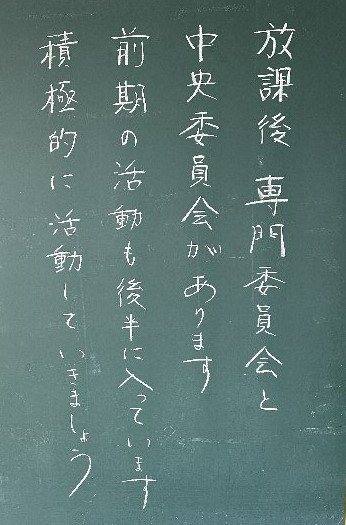 放課後 専門委員会と
中央委員会があります
前期の活動も後半に入っています
積極的に活動していきましょう